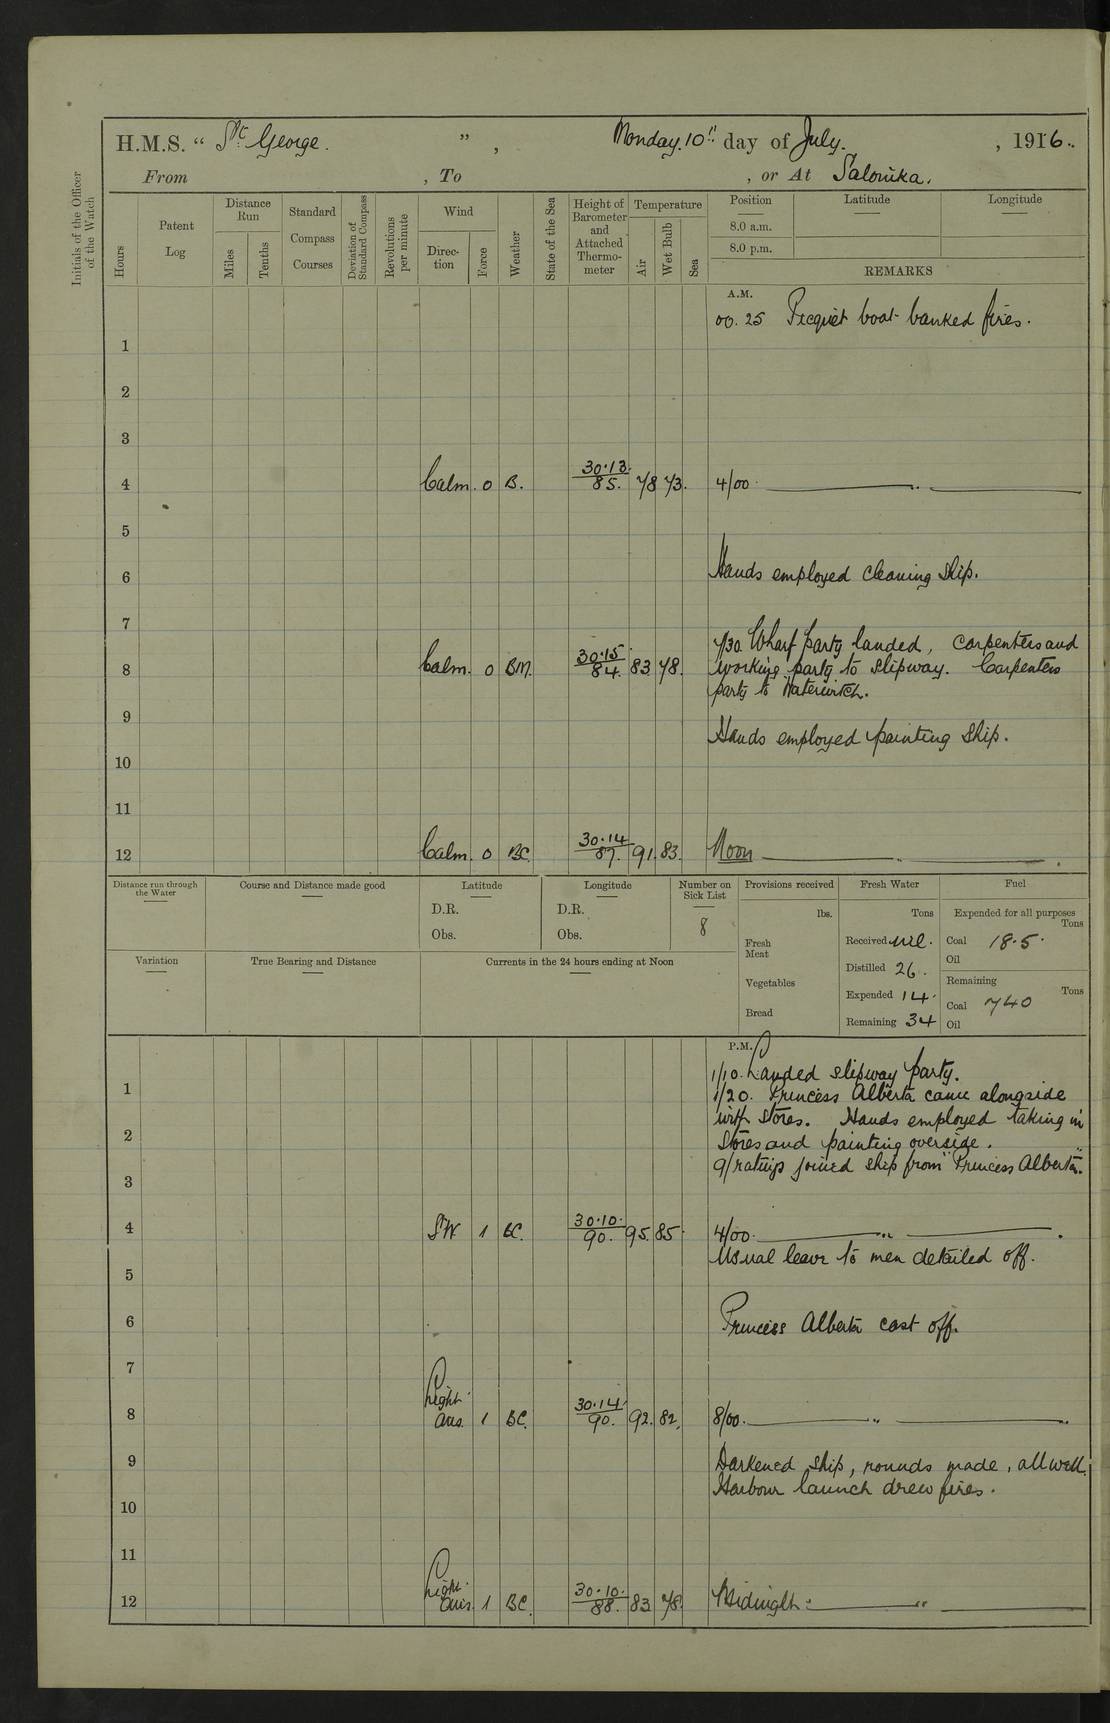 H.M.S. “ St. George. ” , Monday. 10th day of July. , 1916.
From , To , or At Salonika.
Initials of the Officer of the Watch
Hours
Patent Log
Distance Run
Miles
Tenths
Standard Compass Courses
Deviation of Standard Compass
Revolutions per minute
Wind
Direction
Force
Weather
State of the Sea
Height of Barometer and Attached Thermometer
Temperature
Air
Wet Bulb
Sea
Position Latitude Longitude
8.0 a.m.
8.0 p.m.
REMARKS
A.M.
00.25 Picquet boat banked fires.
1
2
3
4 Calm. 0 B. 30.13 85. 78 73. 4/00
5
6 Hands employed cleaning ship.
7
7/30 Wharf party landed, carpenters and
8 Calm. 0 BM. 30.15 84. 83 78. working party to slipway. Carpenters
party to Waterwitch.
9 Hands employed painting ship.
10
11
12 Calm. 0 BC. 30.14 87. 91. 83. Noon
Distance run through the Water
Course and Distance made good
Latitude
D.R.
Obs.
Longitude
D.R.
Obs.
Number on Sick List
8
Provisions received
lbs.
Fresh Meat
Vegetables
Bread
Fresh Water
Tons
Received nil.
Distilled 26.
Expended 14.
Remaining 34
Fuel
Expended for all purposes
Tons
Coal 18.5.
Oil
Remaining
Tons
Coal 740
Oil
Variation
True Bearing and Distance
Currents in the 24 hours ending at Noon
P.M.
1/10. Landed slipway party.
1 1/20. Princess Alberta came alongside
with stores. Hands employed taking in
2 stores and painting overside.
9/ratings joined ship from "Princess Alberta".
3
4 SW 1 BC. 30.10. 90. 95. 85. 4/00.
Usual leave to men detailed off.
5
6 Princess Alberta cast off.
7
8 Light airs. 1 BC. 30.14 90. 92. 82. 8/00.
9 Darkened ship, rounds made, all well.
Harbour launch drew fires.
10
11
12 Light airs. 1 BC. 30.10. 88. 83 78. Midnight